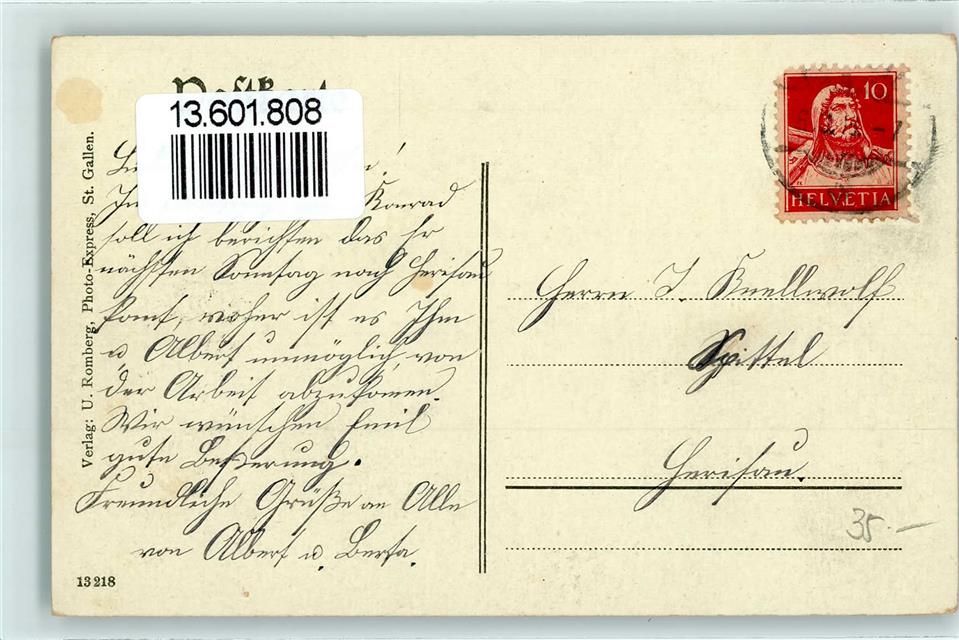 Postkart
13.601.808
Konrad
soll ich berichten das Er
nächsten Sonntag nach Herisau
komt, woher ist es Ihm
u Albert unmöglich, von
der Arbeit abzukomen.
Wir wünschen Emil
gute Besserung.
Freundliche Grüße an Alle
von Albert u. Berta.
Verlag: U. Romberg, Photo-Express, St. Gallen.
13218
10
HELVETIA
Herrn J. Knellwolf
Spittel
Herisau.
35.–